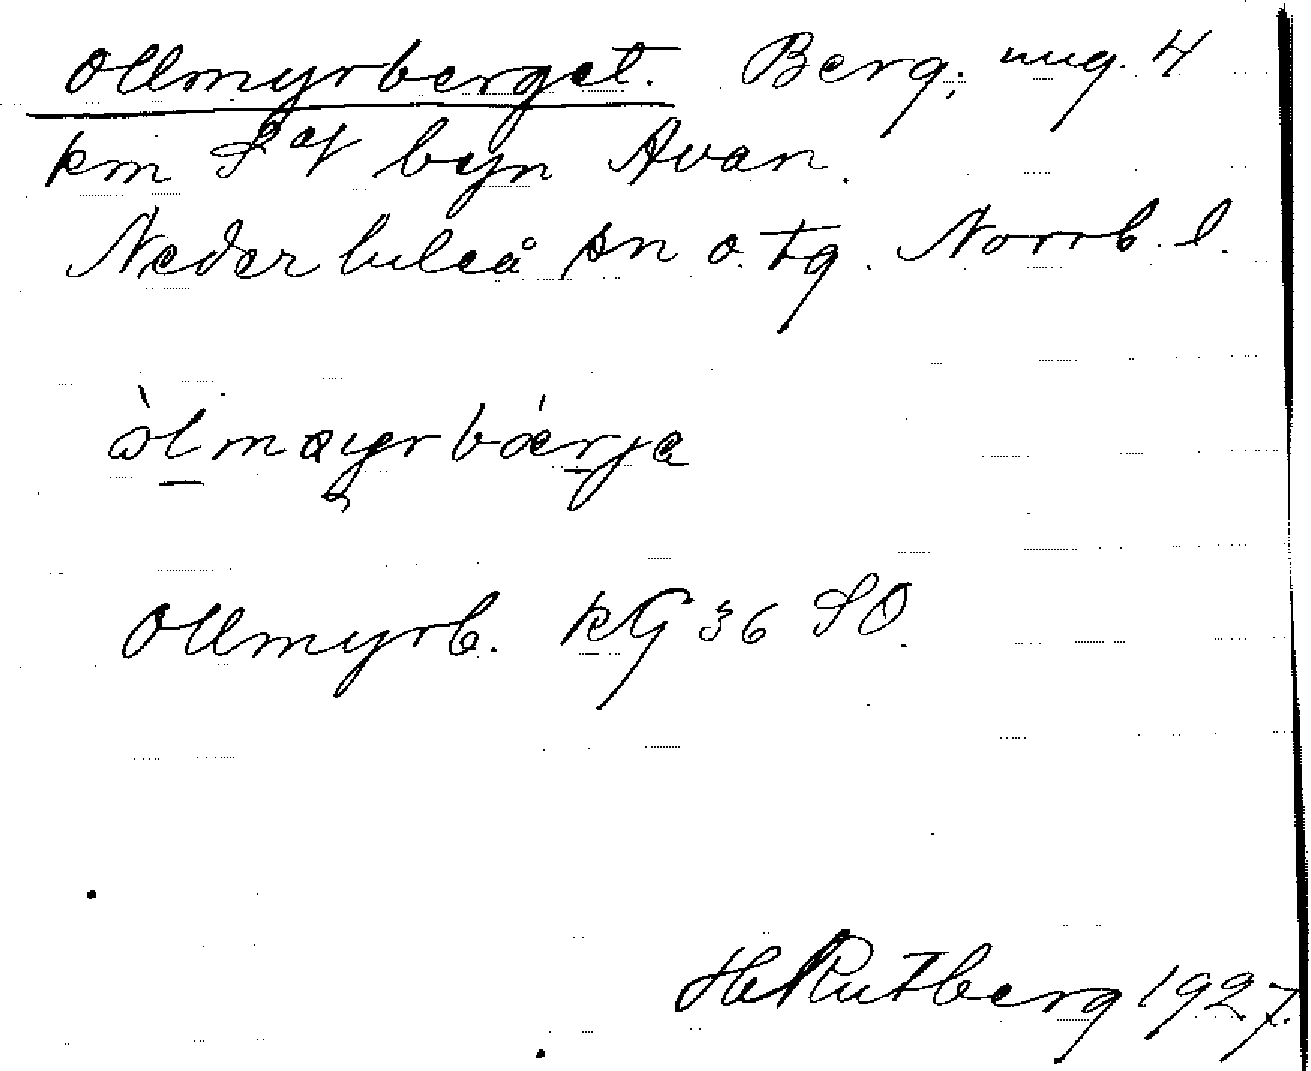 Ollmyrberget. Berg, ung. 4
km S af byn Avan.
Nederluleå sn o. tg. Norrb. l.
òlmayrbǽrje
Ollmyrb. kG 36 SO.
H Rutberg 1927.